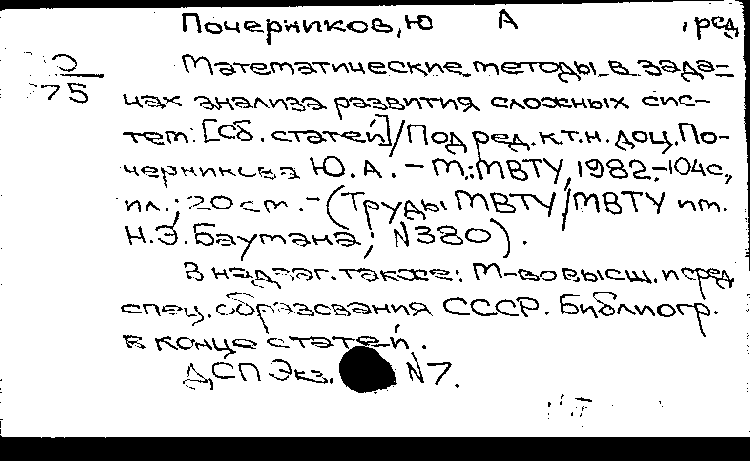 Почерников, Ю А , ред.
Математические методы в зада-
75 чах анализа развития сложных сис-
тем: [Сб. статей]/Под ред. к.т.н. доц. По-
черникова Ю.А. - М.: МВТУ, 1982. - 104с,
ил.; 20 см. - (Труды МВТУ/МВТУ им.
Н.Э. Баумана; №380).
В надзаг. также: М-во высш. и сред.
спец. образования СССР. Библиогр.
в конце статей.
ДСП Экз. №7.